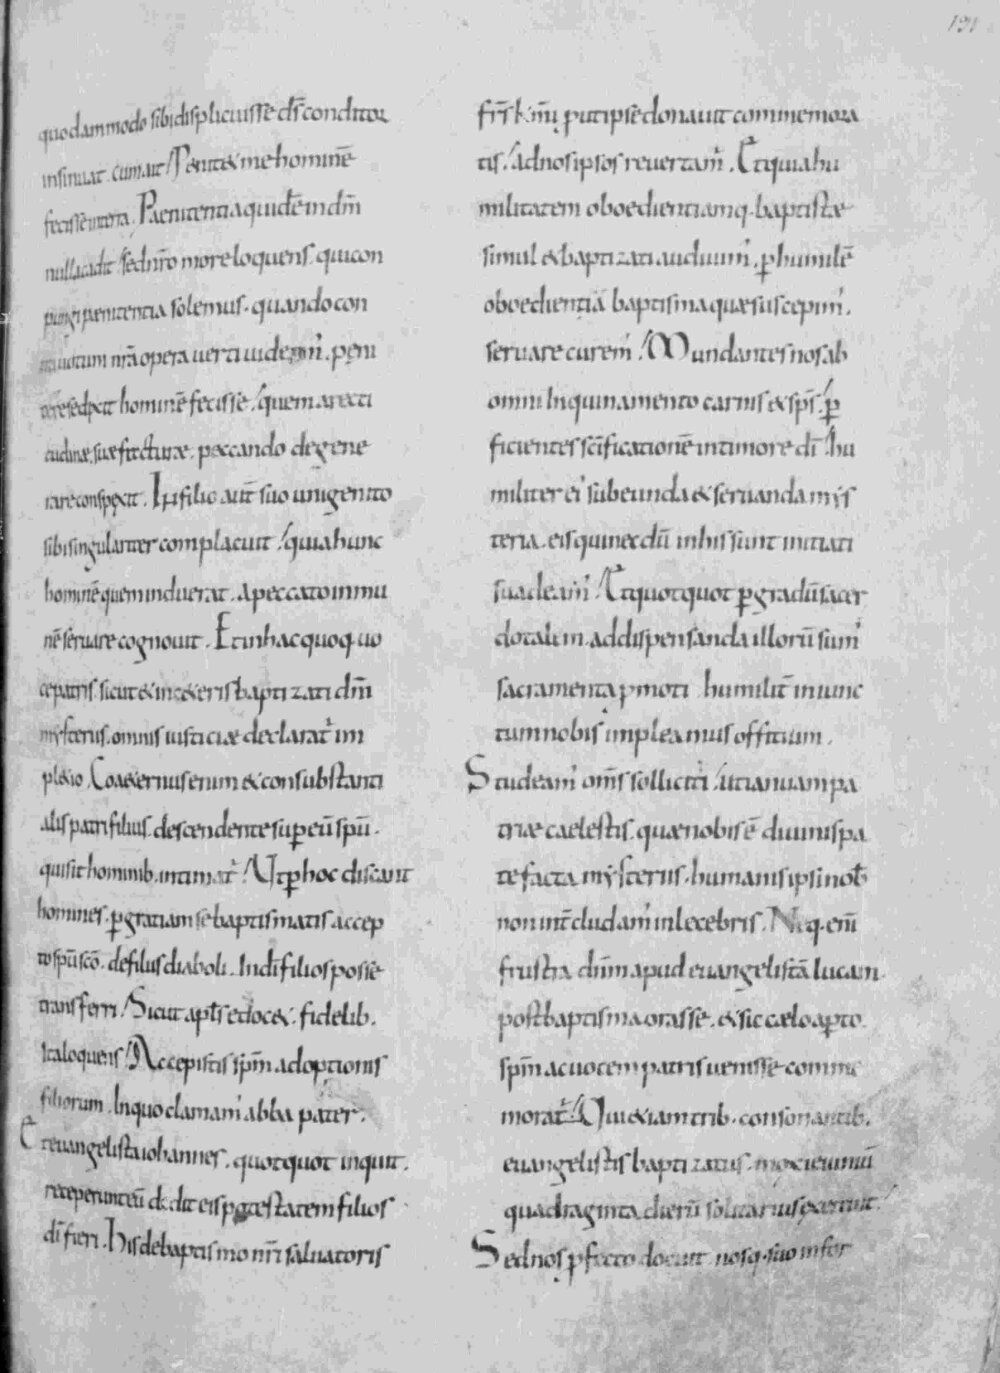 191
quodammodo sibi displicuisse ds̄ conditor
insinuat. cum ait/ Penitet me hominē
fecisse in terra. Paenitentia quidē in dm̄
nulla cadit/ sed nr̄o more loquens. qui con
pungi paenitentia solemus. quando con
nrā opera verti videmꝰ. peni
tere se dixit hominē fecisse/ quem a recti
tudinæ suæ facturæ. peccando degene
rare conspexit. In filio aut̄ suo unigenito
sibi singulariter complacuit/ quia hunc
hominē quem induerat. a peccato inmu
nē servare cognovit. Et in hac quoq. vo
ce patris. sicut & in ceteris baptizati dm̄
mysteriis. omnis iusticiæ declaratꝰ im
pletio. Coaeternus enim & consubstanti
alis patri filius. descendente super eū spū.
qui sit hominib. intimatꝰ. Ut ꝑ hoc discant
homines. ꝑ gratiam se baptismatis accep
to spū sc̄o. de filiis diaboli. In dī filios posse
transferri. Sicut apls̄ edocet. fidelib.
Ita loquens/ Accepistis spm̄ adoptionis
filiorum. In quo clamamꝰ abba pater.
Et evangelista iohannes. quotquot inquit.
receperunt eū dedit eis potestatem filios
dī fieri. His de baptismo nr̄i salvatoris
ipse donavit commemora
tis/ ad nos ipsos revertamꝰ. Et quia hu
militatem oboedientiamq. baptistæ
simul & baptizati audivimꝰ. ꝑ humilē
oboedientiā baptisma quæ suscepimꝰ.
servare curemꝰ/ Mundantes nos ab
omni Inquinamento carnis & sps̄/ ꝑ
ficientes sc̄ificationē in timore dī/ hu
militer eiꝰ subeunda & servanda mys
teria. eis qui necdū in his sunt initiati
suadeamꝰ/ Et quotquot ꝑ gradū sacer
dotalem. ad dispensanda illorū sumꝰ
sacramenta ꝓmoti humilit̄ iniunc
tum nobis impleamus offitium.
Studeamꝰ om̄s solliciti/ ut ianuam pa
triæ caelestis. quæ nobis ē divinis pa
tefacta mysteriis. humanis ipsi nob̄
non int̄cludamꝰ inlecebris. Neq. enī
frustra dn̄m apud evangelistā lucam
post baptisma orasse. & sic cælo aꝑto.
spm̄ ac vocem patris venisse comme
moratꝰ/ Qui etiam trib. consonantib.
evangelistis baptizatus. mox ieiuniū
quadraginta dierū solitarius exercuit/
Sed nos ꝓfecto docuit nosq. suo infor